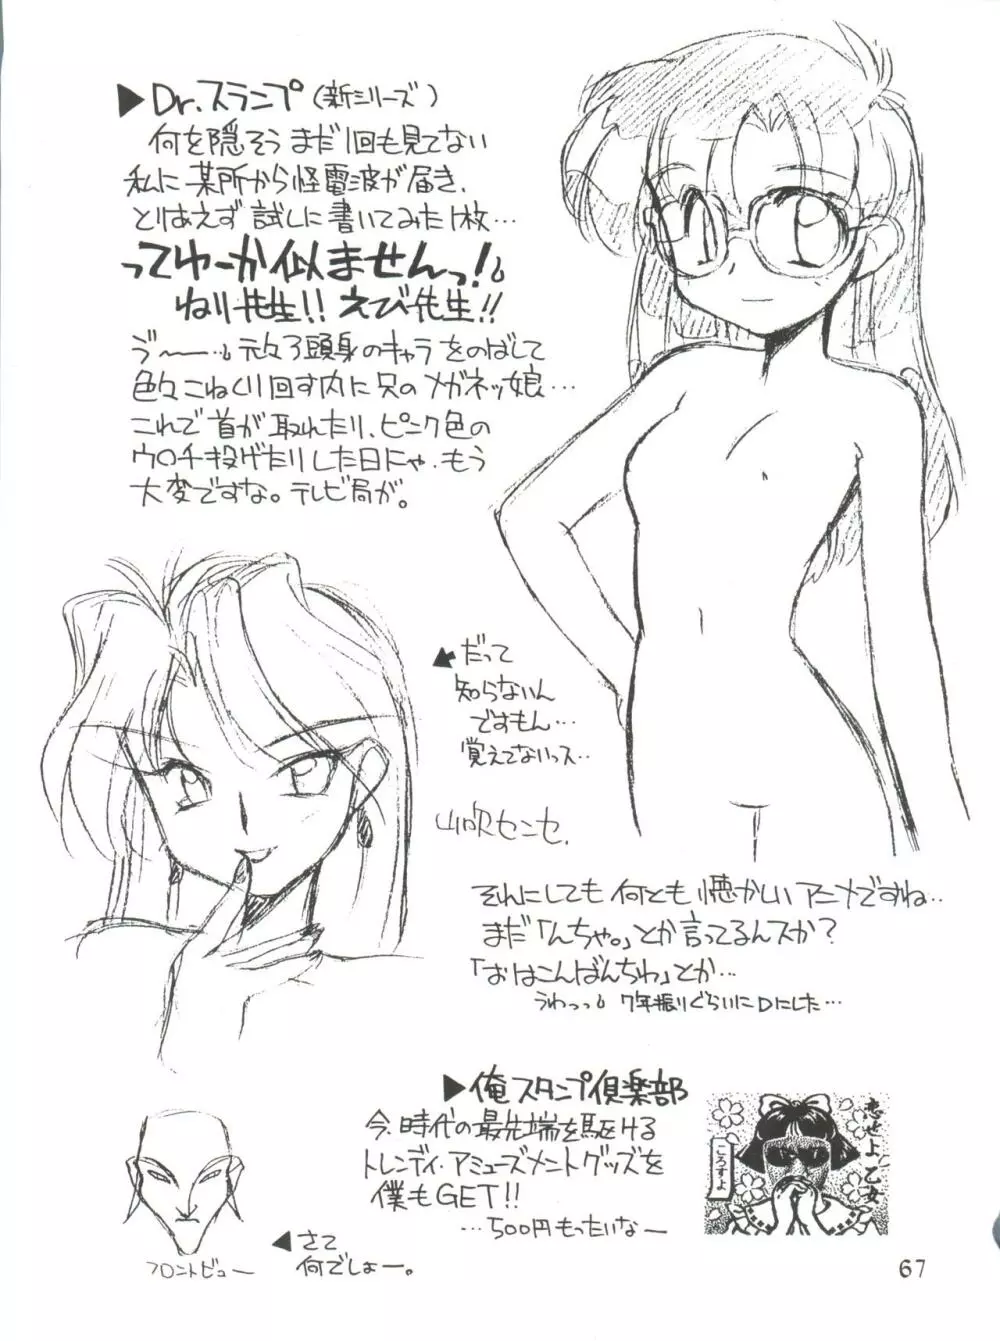 ▶Dr.スランプ(新シリーズ)
何を隠そう まだ1回も見てない
私に某所から怪電波が届き、
とりあえず試しに書いてみた1枚…
ってゆーか似ませんっ!
ねり先生!! えび先生!!
元々3頭身のキャラをのばして
色々こねくり回す内に只のメガネッ娘…
これで首が取れたり、ピンク色の
ウ○チ投げたりした日にゃ、もう
大変ですな。テレビ局が。
だって
知らないん
ですもん…
覚えてないっス…
山吹センセ.
それにしても何とも懐かしいアニメですね…
まだ「んちゃ。」とか言ってるんスか?
「おはこんばんちわ」とか…
うわっっ 7年振りぐらいに口にした…
▶俺スタンプ倶楽部
今、時代の最先端を駆ける
トレンディ・アミューズメントグッズを
僕もGET!!
…500円もったいなー
恋せよ乙女
ころすよ
◀さて
何でしょー。
フロントビュー
67